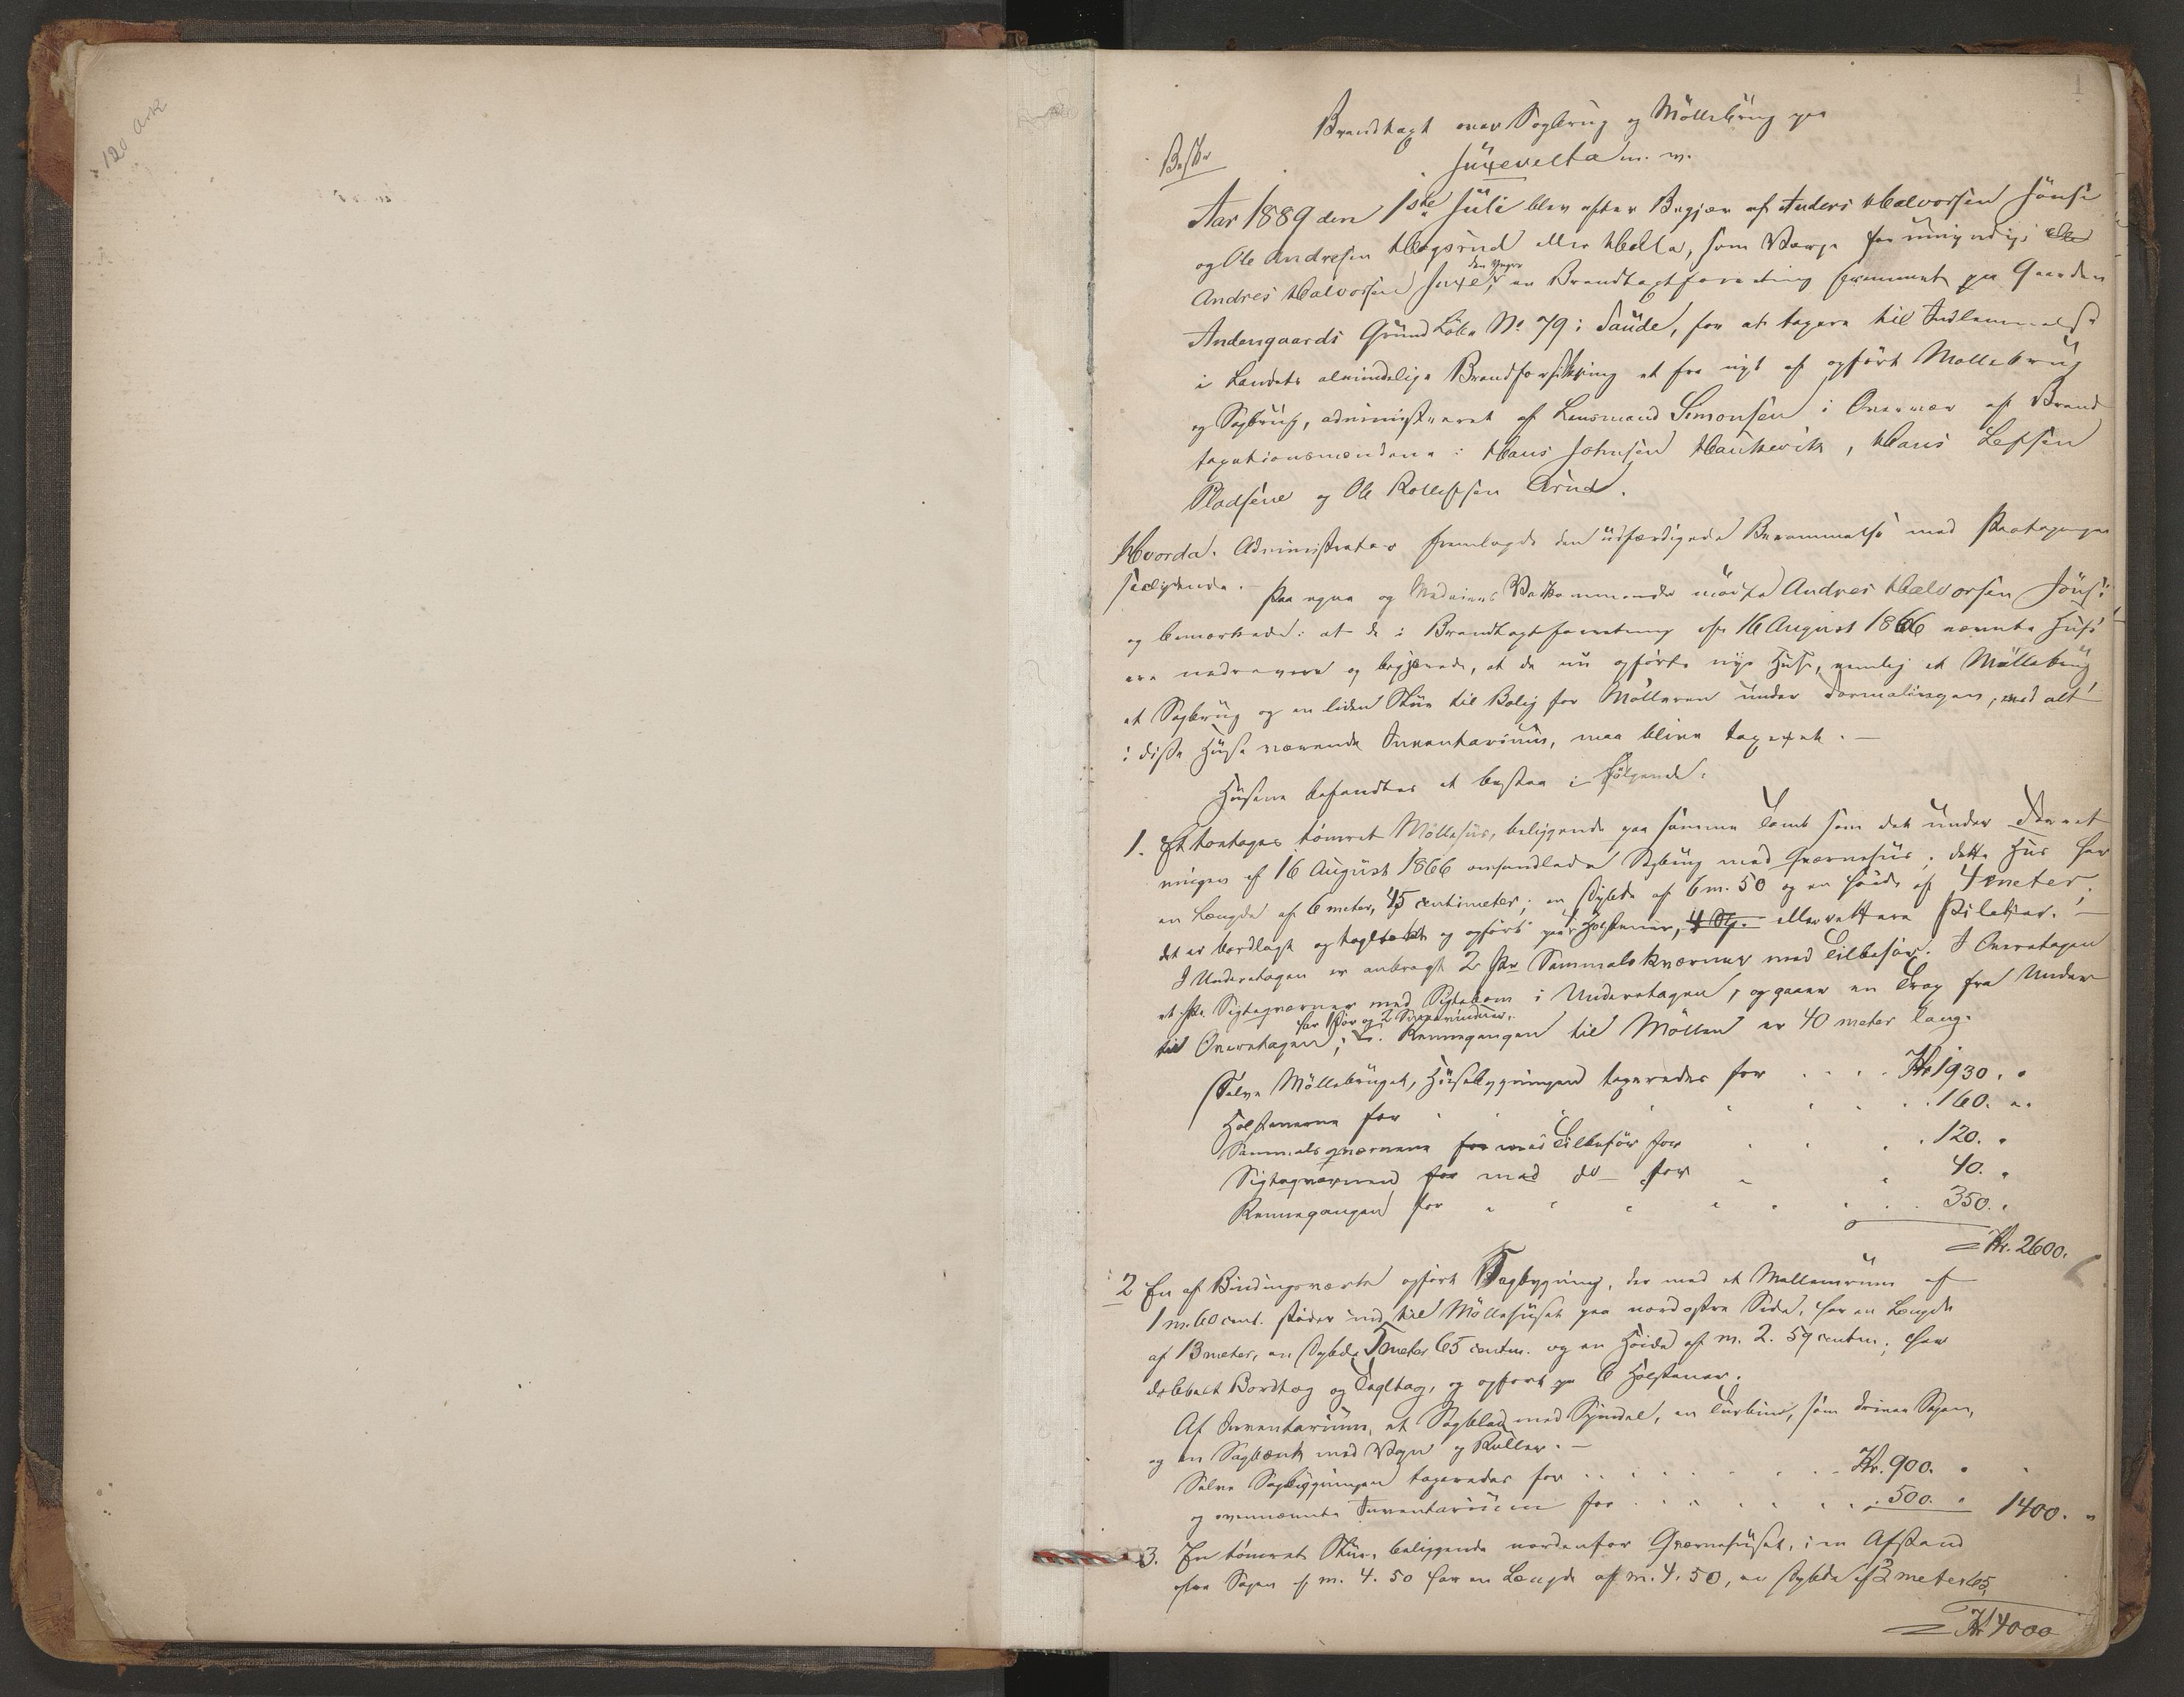 120 Ark
1
Brandtaxt over Sagbrug og Möllebrug paa
Besk.
Juxevelta m. v.
Aar 1889 den 1ste Juli blev efter Begjær af Anders Halvorsen Jönsi
og Ole Andresen Hegsrud eller Hella, som Værge for umyndige
Andres Halvorsen Juxe, den yngre en Brandtaxtforretning fremmet paa Gaarden
Andersgaards Grund Löbe No 79 i Saude, for at taxere til Indlemmelse
i Landets almindelige Brandforsikring et fra nyt af opfört Mollebrug
og Sagbrug, administreret af Lensmand Simonsen i Overvær af Brand
taxationsmændene: Hans Johnsen Haukevik, Hans Lefsen
Pladsene og Ole Rollefsen Aarud.
Hvorda: Administrator fremlagde den udfærdigede Berammelse med Paategninger
saalydende. – Paa egne og Medeiers Vedkommende mödte Andres Halvorsen Jönsi
og bemærkede: at de i Brandtaxtforretning af 16 August 1866 nævnte Huse
ere nedrevne og begjærede, at de nu opförte nye Huse, nemlig et Möllebrug,
et Sagbrug og en liden Stue til Bolig for Mölleren under Formalingen, med alt
i disse Huse værende Inventarium, maa blive taxeret. –
Husene befandtes at bestaa i Fölgende:
1. Et toetages tömret Möllehus, beliggende paa samme Tomt som det under Forret
ningen af 16 August 1866 omhandlede Sagbrug med Qværnehus; dette Hus har
en Længde af 6 meter, 45 centimeter; en Bredde af 6 m. 50 og en Höide af 4 meter;
det er bordlagt og tagltækt og opfört paa Holstener, 4 St. eller rettere Pilarer. –
I Underetagen er anbragt 2 Par Sammalskværner med Tilbehör. I Overetagen
et Par Sigteqværner med Sigtekom i Underetagen, og gaaer en Trap fra Under
til Overetagen; har 1 Dör og 2 Renegangen til Möllen er 40 meter lang.
Selve Möllebruget, Husebygningen taxeredes for . . . . Kr 1930. "
Holstenerne for . . . . . . . 160. "
Sammalsqværnene for med Tilbehör for . . . 120. "
Sigteqværnen for med do – for . . 40. "
Rennegangen for . . . . . . 350. "
= Kr. 2600.
2 En af Bindingsværk opfört Sagbygning, der med et Mellemrum af
1 m. 60 cent. stöder ind til Möllehuset paa nordostre Side, har en Længde
af 13 meter, en Bredde 5 meter 65 centm. og en Höide af m. 2. 59 centm.; har
dobbelt Bordtag og Tagltag, og opfört paa 6 Holstener.
Af Inventarium, et Sagblad med Spindel, en Turbine, som driver Sagen,
og en Sagbænk med Vogn og Ruller. –
Selve Sagbygningen taxeredes for . . . . . . Kr. 900. "
og ovennævnte Inventarium for . . . . . . 500. " 1400. "
3. En tömret Stue, beliggende nordenfor Qværnehuset, i en Afstand
fra Sagen af m. 4. 50 har en Længde af m. 4. 50, en Bredde af 3 meter 65,
= Kr 4000